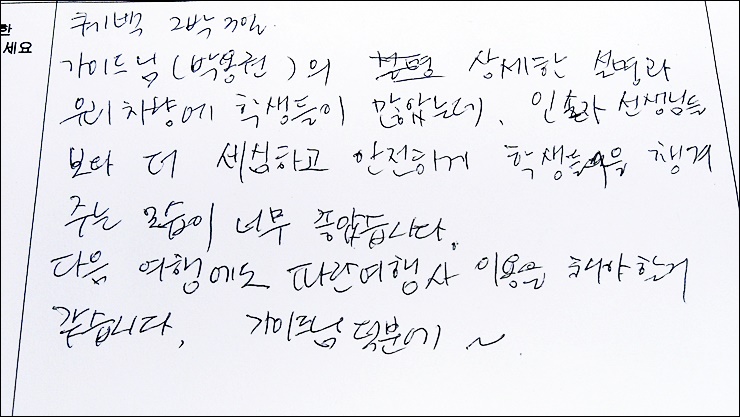 한
세요
퀘백 2박 3일
가이드님(박용현)의 설명 상세한 설명과
우리차량에 학생들이 많았는데, 인솔자 선생님들
보다 더 세심하고 안전하게 학생들을 챙겨
주는 모습이 너무 좋았습니다.
다음 여행에도 파란여행사 이용을 해야할거
같습니다. 가이드님 덕분에 ~